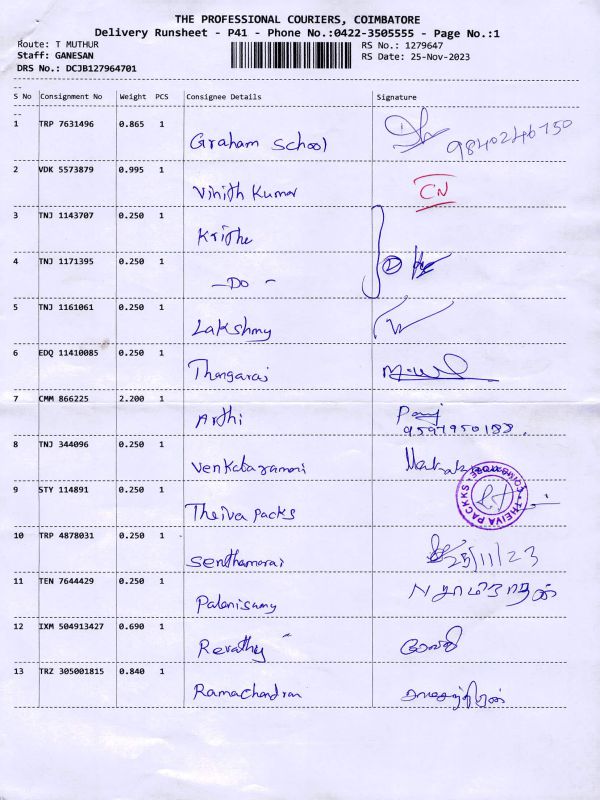 THE PROFESSIONAL COURIERS, COIMBATORE
Delivery Runsheet - P41 - Phone No.:0422-3505555 - Page No.:1
Route: T MUTHUR RS No.: 1279647
Staff: GANESAN RS Date: 25-Nov-2023
DRS No.: DCJB127964701
S No Consignment No Weight PCS Consignee Details Signature
1 TRP 7631496 0.865 1 Graham School 9840246750
2 VDK 5573879 0.995 1 Vinith Kumar CN
3 TNJ 1143707 0.250 1 Krithe
4 TNJ 1171395 0.250 1 -Do-
5 TNJ 1161061 0.250 1 Lakshmy
6 EDQ 11410085 0.250 1 Thangaraj
7 CMM 866225 2.200 1 Arthi
9597950188.
8 TNJ 344096 0.250 1 Venkataramani
9 STY 114891 0.250 1 Theiva Packs THEIVA PACKKS COIMBATORE
10 TRP 4878031 0.250 1 Senthamarai 25/11/23
11 TEN 7644429 0.250 1 Palanisamy
12 IXM 504913427 0.690 1 Revathy ரேவதி
13 TRZ 305001815 0.840 1 Ramachandran